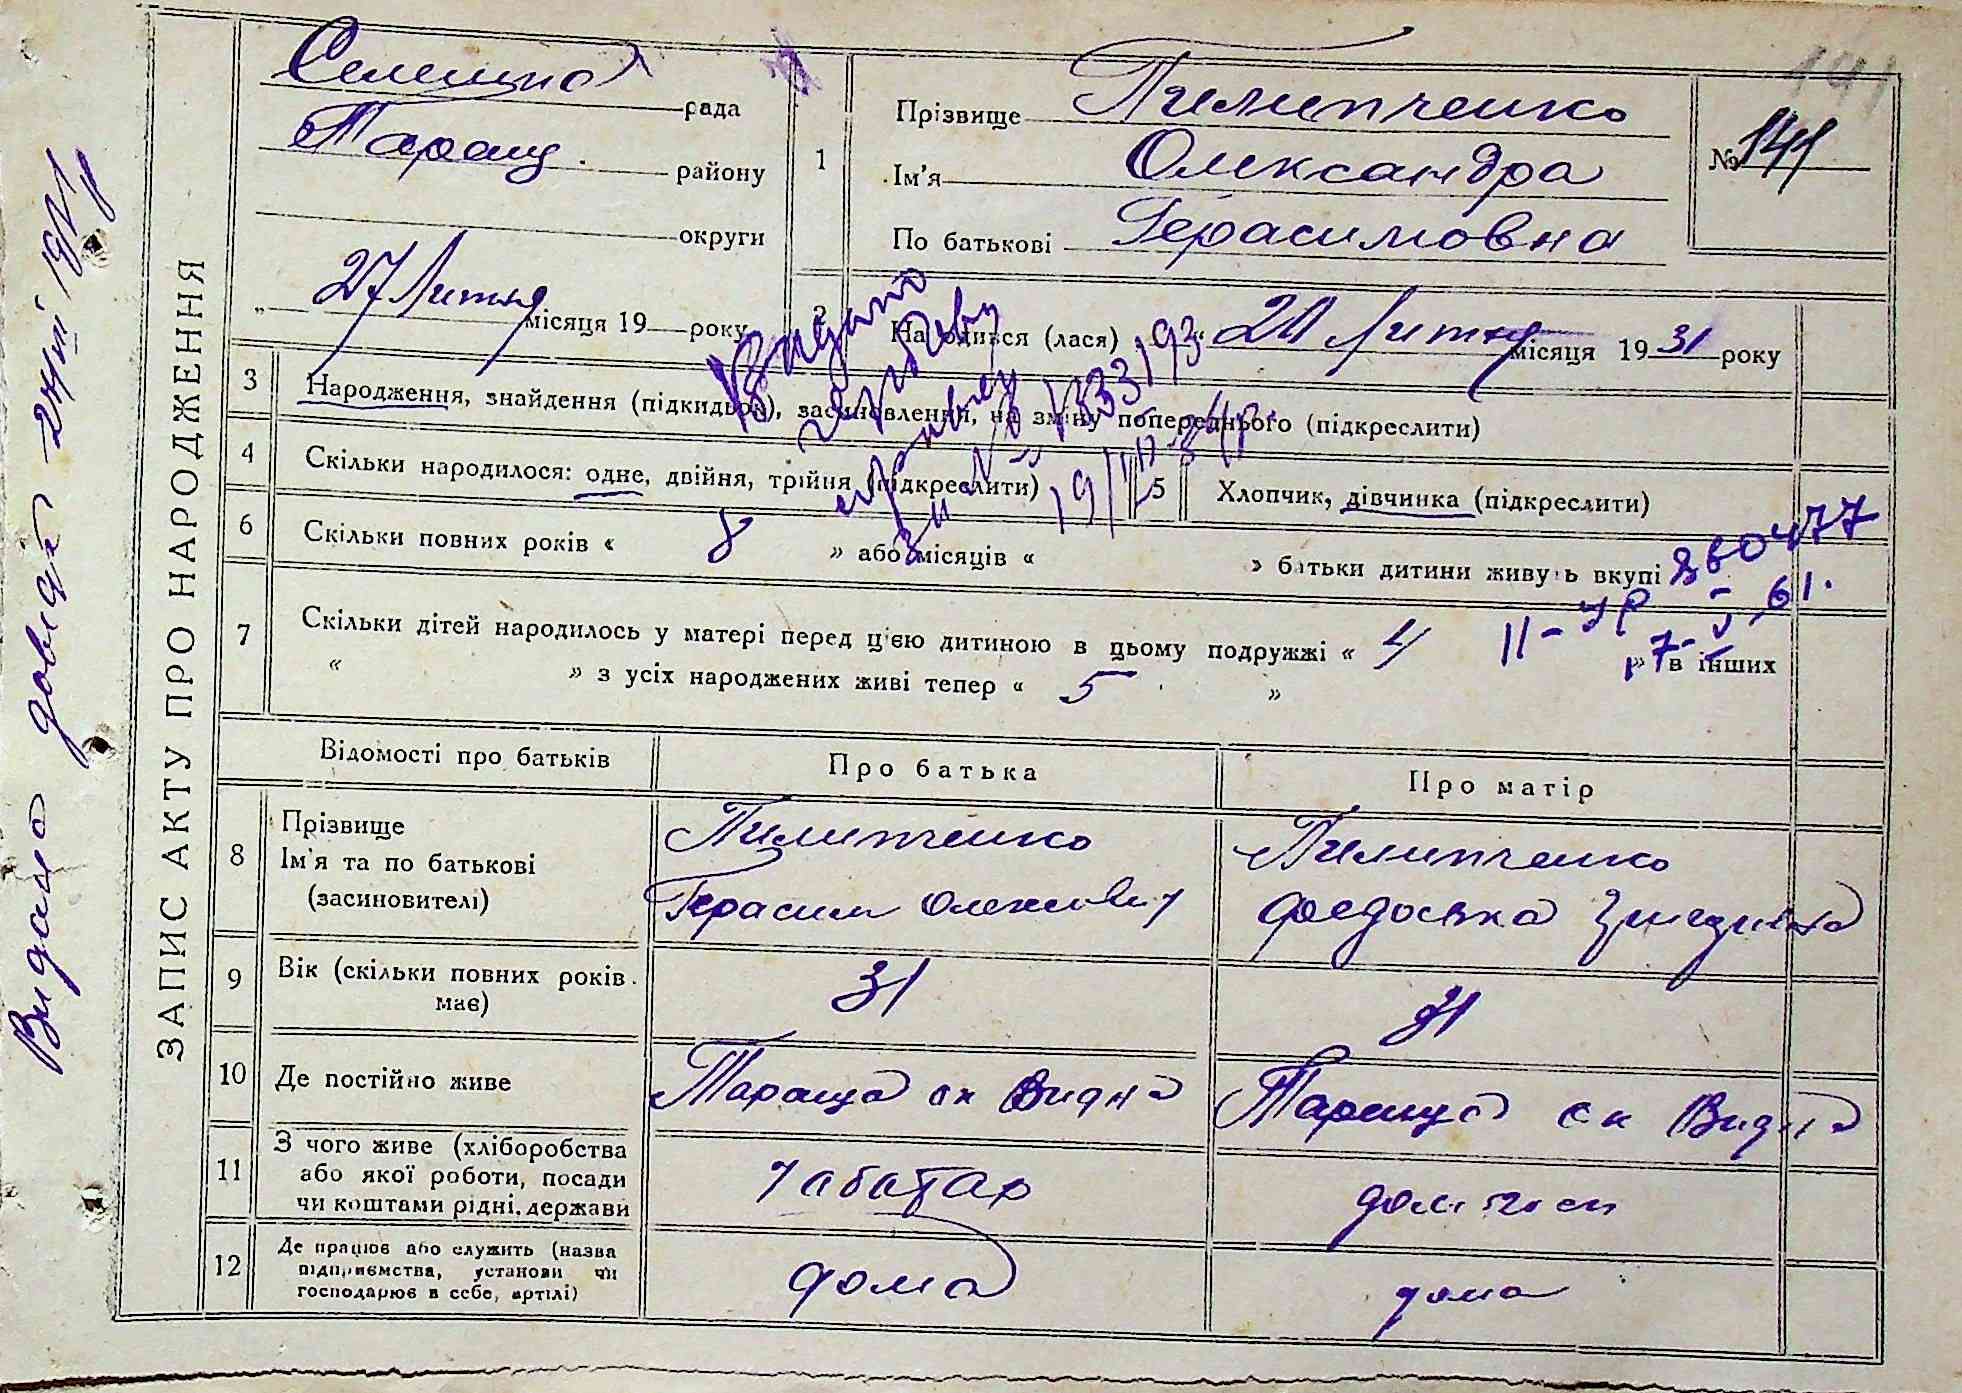 ЗАПИС АКТУ ПРО НАРОДЖЕННЯ
Видано
рада
Таращ. району
округи
27 Лютня місяця 19 року
1
Прізвище Пилипченко
Ім'я Олександра
По батькові Герасимовна
№ 141
2
Народився (лася) „ 20 Лютня місяця 19 31 року
3
Народження, знайдення (підкидьок), засиновлення, на зміну попереднього (підкреслити)
4
Скільки народилося: одне, двійня, трійня (підкреслити)
5
Хлопчик, дівчинка (підкреслити)
6
Скільки повних років « 8 » або місяців « » батьки дитини живуть вкупі
7
Скільки дітей народилось у матері перед цією дитиною в цьому подружжі « 4 » в інших
« » з усіх народжених живі тепер « 5 »
Видано
860477
Відомості про батьків
Про батька
Про матір
8
Прізвище
Ім'я та по батькові
(засиновителі)
Пилипченко
Герасим
Пилипченко
Федоська
9
Вік (скільки повних років
має)
31
31
10
Де постійно живе
Тараща
Тараща
11
З чого живе (хліборобства
або якої роботи, посади
чи коштами рідні, держави
чаботар
12
Де працює або служить (назва
підприємства, установи чи
господарює в себе, артілі)
дома
дома